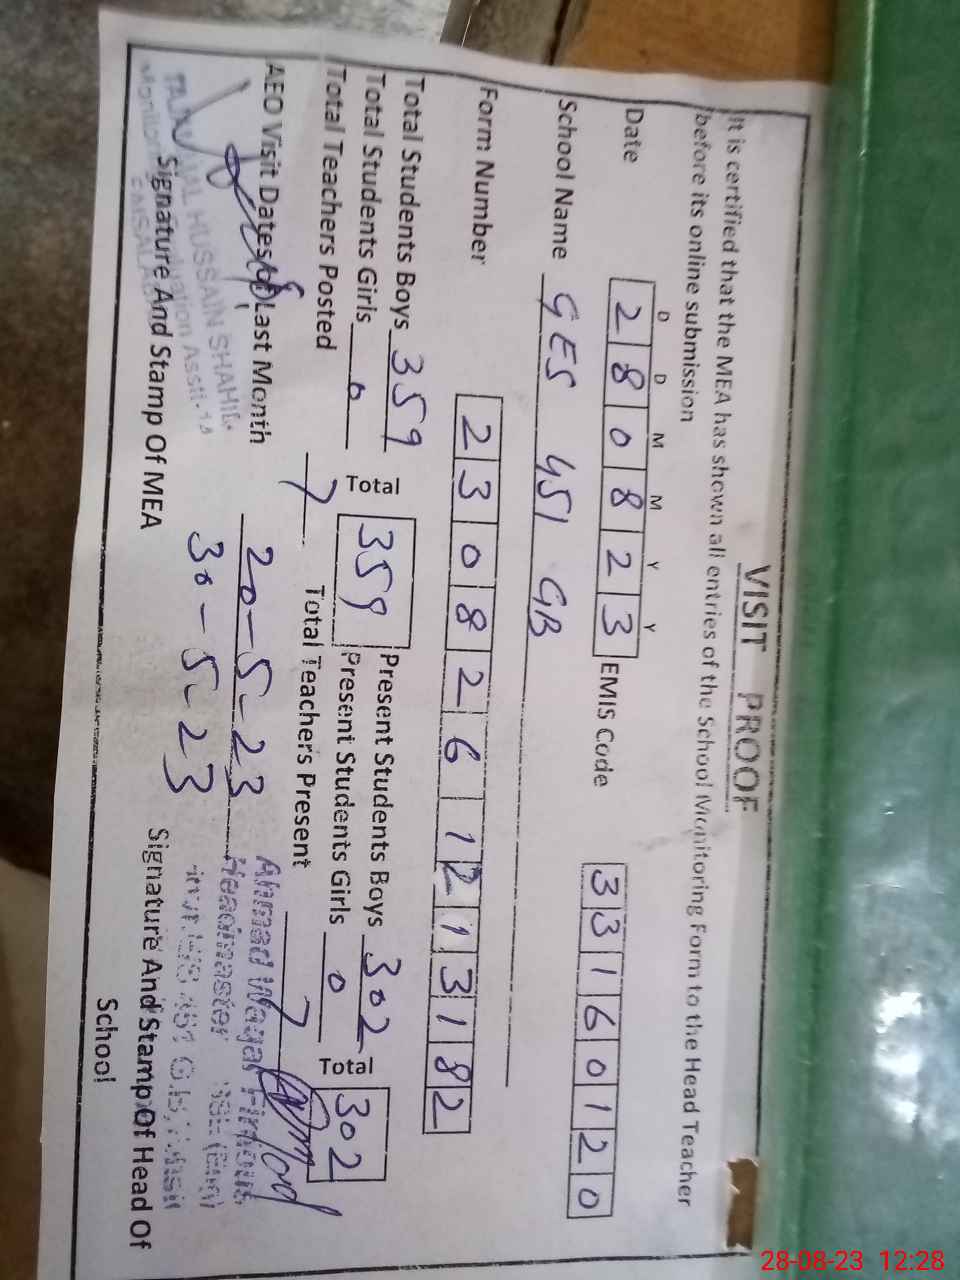 VISIT PROOF
It is certified that the MEA has shown all entries of the School Monitoring Form to the Head Teacher
before its online submission
D D M M Y Y
Date 2 8 0 8 2 3 EMIS Code 3 3 1 6 0 1 2 0
School Name GES 451 GB
Form Number 2 3 0 8 2 6 1 2 1 3 1 8 2
Total Students Boys 359 Total 359 Present Students Boys 302 Total 302
Total Students Girls 0 Present Students Girls 0
Total Teachers Posted 7 Total Teachers Present 7
AEO Visit Dates of Last Month 20-5-23
30-5-23
HUSSAIN SHAHID
Ahmad Waqar
Headmaster
Signature And Stamp Of MEA
Signature And Stamp Of Head Of
School
28-08-23 12:28